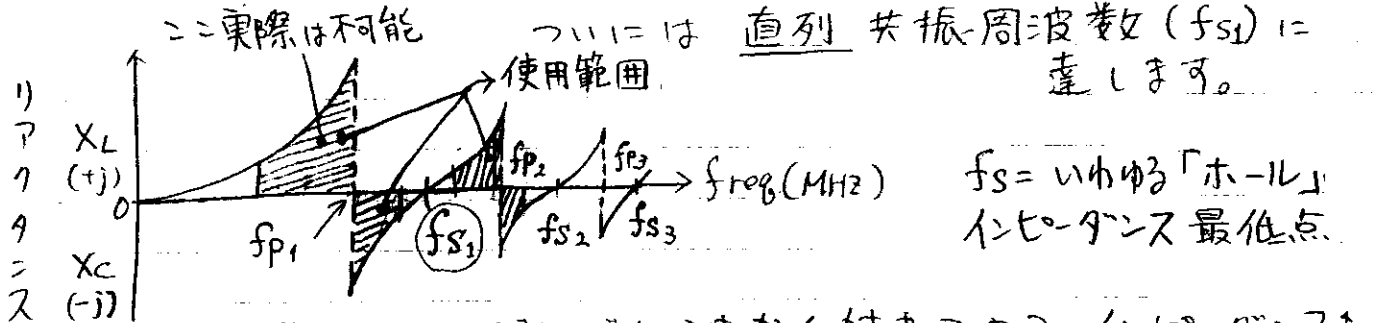 ここ実際は不可能
ついには 直列 共振周波数 (fs1) に
達します。
使用範囲
リアクタンス
XL
(+j)
0
XC
(-j)
fp1
fs1
fp2
fs2
fp3
fs3
freq(MHz)
fs = いわゆる「ホール」
インピーダンス最低点